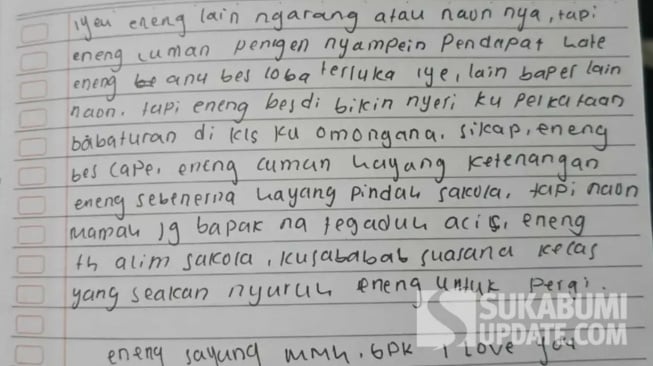 iyeu eneng lain ngarang atau naon nya, tapi
eneng cuman pengen nyampein pendapat hate
eneng be anu bes loba terluka iye, lain baper lain
naon. tapi eneng besdi bikin nyeri ku perkataan
babaturan di kls ku omongana. sikap, eneng
bes cape, eneng cuman hayang ketenangan
eneng sebenerna hayang pindah sakola. tapi naon
mamah jg bapak na tegaduh acis, eneng
th alim sakola, kusababab suasana kelas
yang seakan nyuruh eneng untuk pergi.
SUKABUMI
UPDATE.COM
eneng sayang mmh, bpk I love you